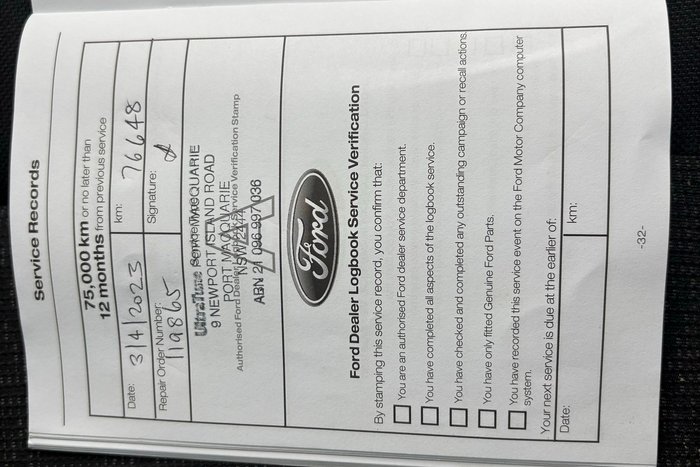 Service Records
75,000 km or no later than
12 months from previous service
Date: 3/4/2023 km: 76648
Repair Order Number: 119865 Signature:
UltraTune PORT MACQUARIE
9 NEWPORT ISLAND ROAD
PORT MACQUARIE
Authorised Ford Dealer Logbook Service Verification Stamp
NSW 2444
ABN 21 096 997 036
Ford
Ford Dealer Logbook Service Verification
By stamping this service record, you confirm that:
You are an authorised Ford dealer service department.
You have completed all aspects of the logbook service.
You have checked and completed any outstanding campaign or recall actions.
You have only fitted Genuine Ford Parts.
You have recorded this service event on the Ford Motor Company computer
system.
Your next service is due at the earlier of:
Date: km:
-32-